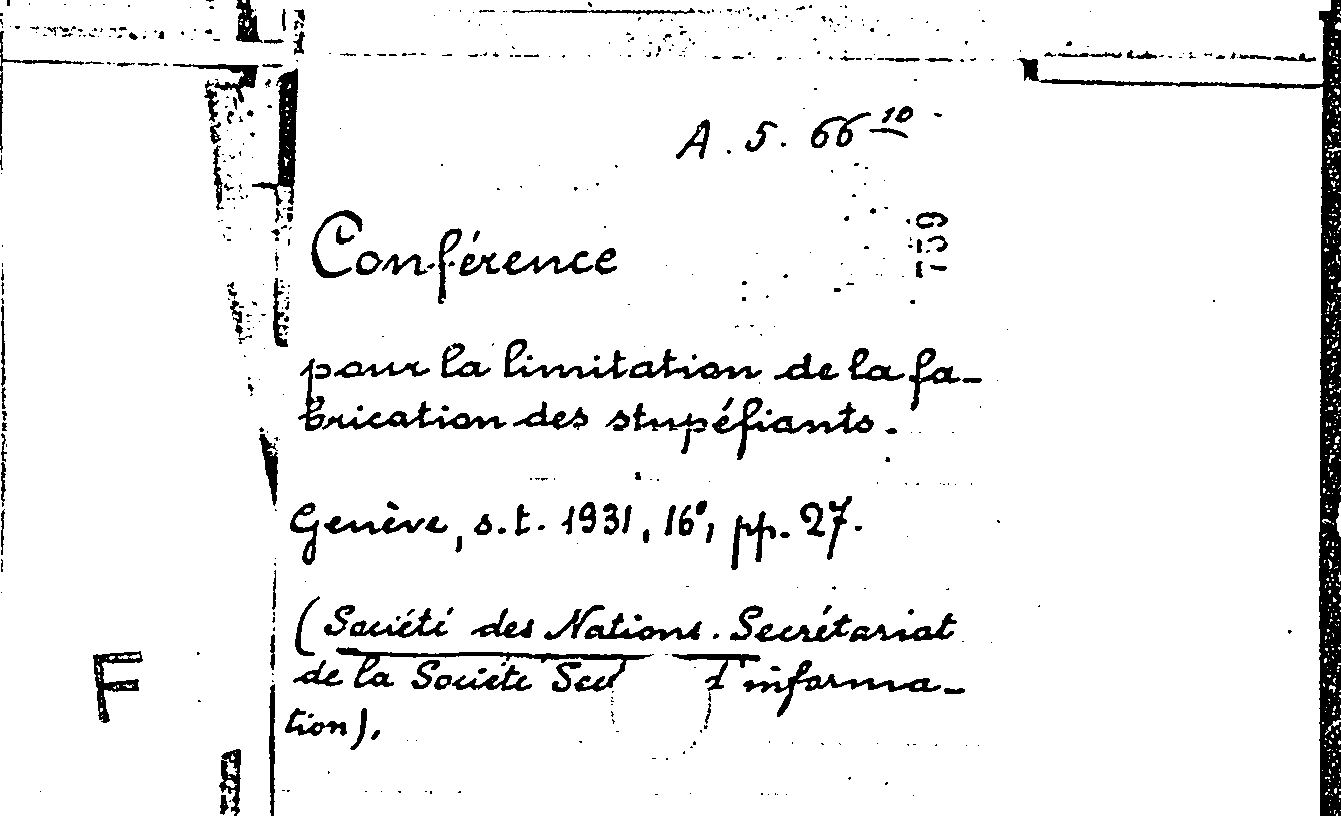 A. 5. 66 10
739
Conférence
pour la limitation de la fa-
brication des stupéfiants.
Genève, s.t. 1931, 16°, pp. 27.
(Société des Nations. Secrétariat
de la Société d'informa-
tion).
F